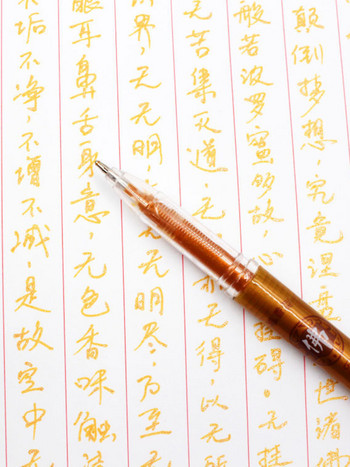 垢不净，不增不减，是故空中无
眼耳鼻舌身意，无色香味触
界，无无明，无无明尽，乃至无
无苦集灭道，无亦无得，以无所
般若波罗蜜多故，心挂碍。无挂
颠倒梦想，究竟涅世诸佛
佛